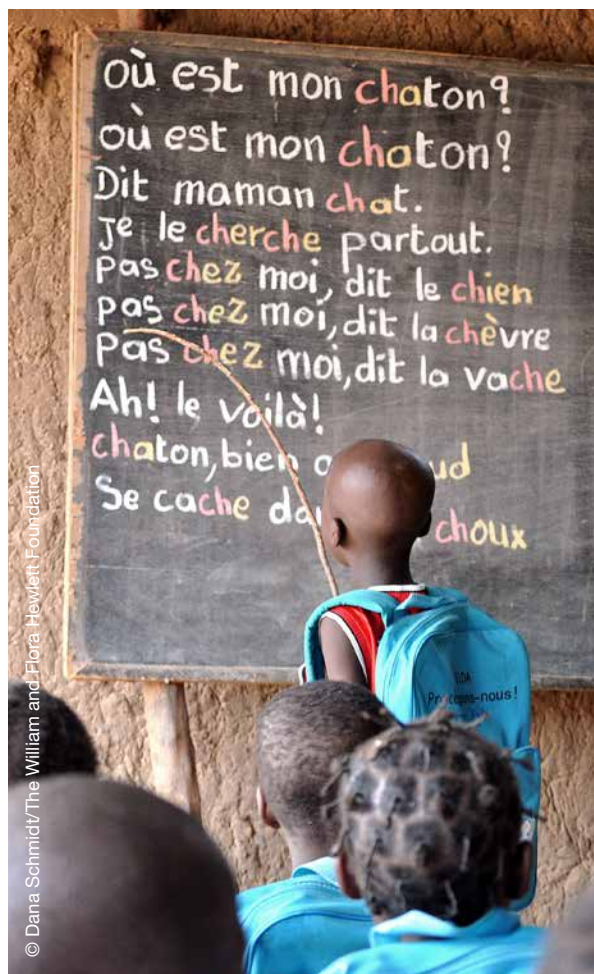 où est mon chaton?
où est mon chaton?
Dit maman chat.
Je le cherche partout.
pas chez moi, dit le chien
pas chez moi, dit la chèvre
Pas chez moi, dit la vache
Ah! le voilà!
chaton, bien
Se cache choux
-nous!
© Dana Schmidt/The William and Flora Hewlett Foundation